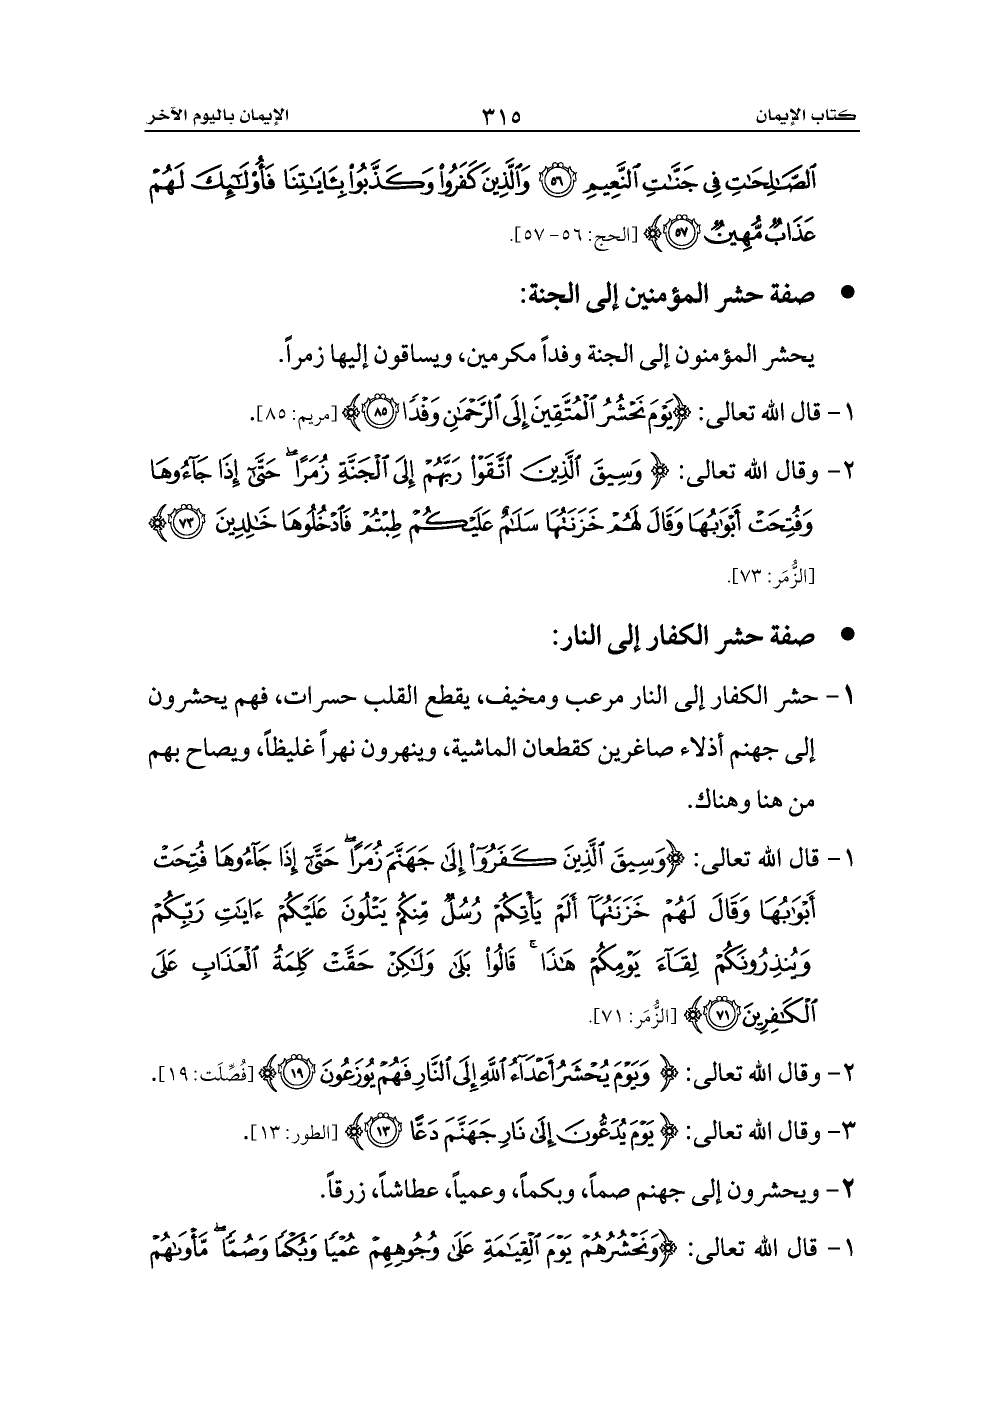 كتاب الإيمان ٣١٥ الإيمان باليوم الآخر
ٱلصَّـٰلِحَـٰتِ فِى جَنَّـٰتِ ٱلنَّعِيمِ ۝٥٦ وَٱلَّذِينَ كَفَرُوا۟ وَكَذَّبُوا۟ بِـَٔايَـٰتِنَا فَأُو۟لَـٰٓئِكَ لَهُمْ
عَذَابٌ مُّهِينٌ ۝٥٧﴾ [الحج: ٥٦- ٥٧].
● صفة حشر المؤمنين إلى الجنة:
يحشر المؤمنون إلى الجنة وفداً مكرمين، ويساقون إليها زمراً.
١- قال الله تعالى: ﴿يَوْمَ نَحْشُرُ ٱلْمُتَّقِينَ إِلَى ٱلرَّحْمَـٰنِ وَفْدًا ۝٨٥﴾ [مريم: ٨٥].
٢- وقال الله تعالى: ﴿وَسِيقَ ٱلَّذِينَ ٱتَّقَوْا۟ رَبَّهُمْ إِلَى ٱلْجَنَّةِ زُمَرًا ۖ حَتَّىٰٓ إِذَا جَآءُوهَا
وَفُتِحَتْ أَبْوَٰبُهَا وَقَالَ لَهُمْ خَزَنَتُهَا سَلَـٰمٌ عَلَيْكُمْ طِبْتُمْ فَٱدْخُلُوهَا خَـٰلِدِينَ ۝٧٣﴾
[الزُّمَر: ٧٣].
● صفة حشر الكفار إلى النار:
١- حشر الكفار إلى النار مرعب ومخيف، يقطع القلب حسرات، فهم يحشرون
إلى جهنم أذلاء صاغرين كقطعان الماشية، وينهرون نهراً غليظاً، ويصاح بهم
من هنا وهناك.
١- قال الله تعالى: ﴿وَسِيقَ ٱلَّذِينَ كَفَرُوٓا۟ إِلَىٰ جَهَنَّمَ زُمَرًا ۖ حَتَّىٰٓ إِذَا جَآءُوهَا فُتِحَتْ
أَبْوَٰبُهَا وَقَالَ لَهُمْ خَزَنَتُهَآ أَلَمْ يَأْتِكُمْ رُسُلٌ مِّنكُمْ يَتْلُونَ عَلَيْكُمْ ءَايَـٰتِ رَبِّكُمْ
وَيُنذِرُونَكُمْ لِقَآءَ يَوْمِكُمْ هَـٰذَا ۚ قَالُوا۟ بَلَىٰ وَلَـٰكِنْ حَقَّتْ كَلِمَةُ ٱلْعَذَابِ عَلَى
ٱلْكَـٰفِرِينَ ۝٧١﴾ [الزُّمَر: ٧١].
٢- وقال الله تعالى: ﴿وَيَوْمَ يُحْشَرُ أَعْدَآءُ ٱللَّهِ إِلَى ٱلنَّارِ فَهُمْ يُوزَعُونَ ۝١٩﴾ [فُصِّلَت: ١٩].
٣- وقال الله تعالى: ﴿يَوْمَ يُدَعُّونَ إِلَىٰ نَارِ جَهَنَّمَ دَعًّا ۝١٣﴾ [الطور: ١٣].
٢- ويحشرون إلى جهنم صماً، وبكماً، وعمياً، عطاشاً، زرقاً.
١- قال الله تعالى: ﴿وَنَحْشُرُهُمْ يَوْمَ ٱلْقِيَـٰمَةِ عَلَىٰ وُجُوهِهِمْ عُمْيًا وَبُكْمًا وَصُمًّا ۖ مَّأْوَىٰهُمْ